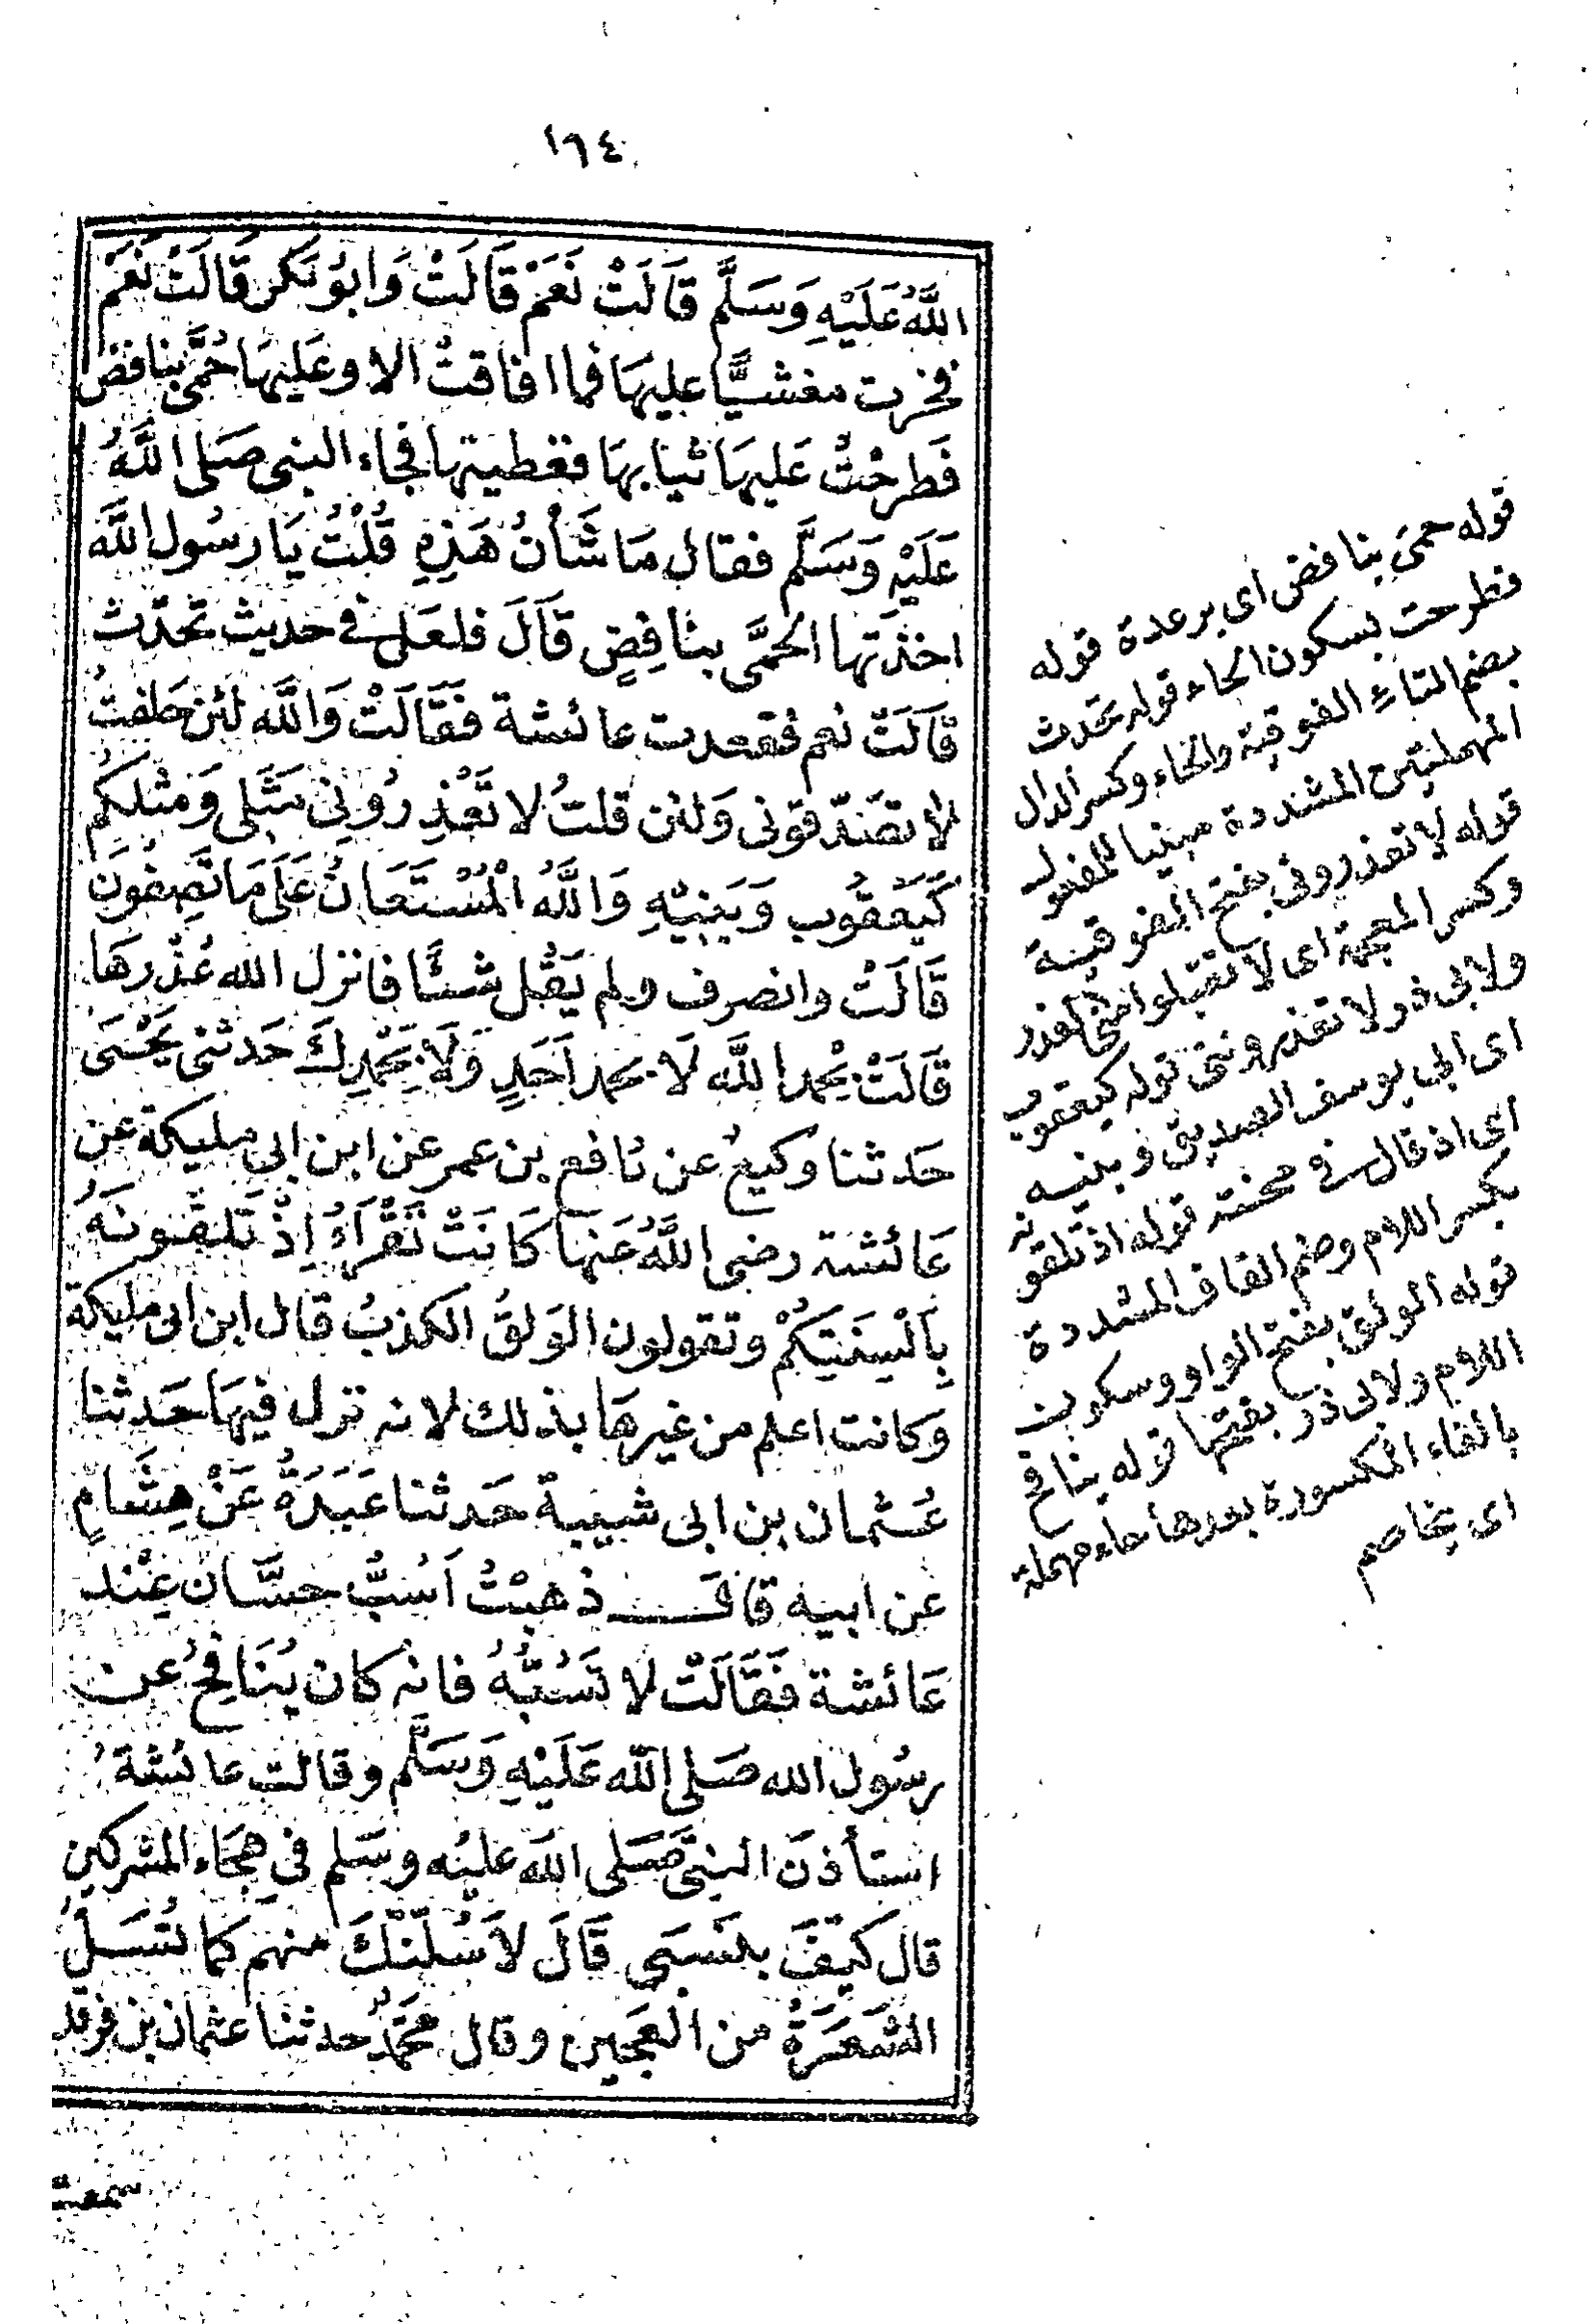 ١٦٤
اللَّهُ عَلَيْهِ وَسَلَّم قَالَتْ نَعَمْ قَالَتْ وَابُو بَكر قَالَتْ نَعَمْ
فخرت مغشيًّا عليهَا فما افاقتْ الا وعَليهَا حُمَّى بنافض
فَطرحْتُ عَليهَا ثيابهَا فغطيتها فجاء النبى صَلى اللَّهُ
عَلَيْهِ وَسَلَّم فقال مَا شَأْنُ هَذِهِ قُلْتُ يَا رسُول اللَّه
اخذَتها الحمَّى بنافِضٍ قَالَ فلعَل فى حديث تحُدّث
قَالَتْ نعم فقعدت عائشة فَقَالَتْ وَاللَّه لئن حَلفتُ
لا تصَدّقونى وَلئن قلتُ لا تَعْذِرُونِى مَثَلِى وَمثلكم
كَيَعقُوب وَبَنِيْهِ وَاللَّهُ الْمُسْتَعَانُ عَلَى مَا تَصِفُونَ
قَالَتْ وانصرف ولم يَقُل شيئًا فانزل الله عُذْرهَا
قَالَتْ بحْمد اللَّه لَا بحمد اَحَدٍ وَلَا بِحَمْدِكَ حَدثنى يَحْيَى
حَدثنا وكيعٌ عن نافع بن عمر عن ابن ابى مليكة عن
عَائشة رضى اللَّهُ عَنهَا كَانَتْ تَقْرَأُ اِذْ تَلِقُونَهُ
بِاَلْسِنَتِكُمْ وتقولون الوَلقُ الكذبُ قال ابن ابى مليكة
وَكانت اعلم من غيرهَا بذلك لانه نزل فيهَا حَدثنا
عُثمان بن ابى شيبة حَدثنا عَبَدَةُ عَنْ هِشَامٍ
عن ابيه قال ذهبْتُ اَسُبُّ حسَّان عِنْد
عَائشة فَقَالَتْ لا تَسُبُّهُ فانه كان يُنَافِحُ عن
رسُول الله صَلى اللَّه عَلَيْهِ وَسَلَّم وقالت عائشَةُ
استأذنَ النبىَّ صَلى اللَّه عليْه وسَلم فى هجَاء المشركين
قال كَيْفَ بنسَبى قَالَ لَاَسُلّنّكَ منهم كما تُسَلُّ
الشَّعَرَةُ من العَجين وقال محَمّدٌ حدثنا عثمان بن فرقد
سمعت
قوله حمى بنافض اى برعدة قوله
فطرحت بسكون الحاء قوله تحدث
بضم التاء الفوقية والحاء وكسر الدال
المهملتين المشددة مبنيا للمفعول
قوله لا تعذرونى بفتح الفوقية
وكسر المعجمة اى لا تقبلوا منى العذر
ولابى ذر لا تعذروننى قوله كيعقوب
اى ابى يوسف الصديق وبنيه
اى اذ قال فى محنته قوله اذ تلقونه
بكسر اللام وضم القاف المشددة
قوله الولق بفتح الواو وسكون
اللام ولابى ذر بفتحها قوله ينافح
بالفاء المكسورة بعدها حاء مهملة
اى يخاصم